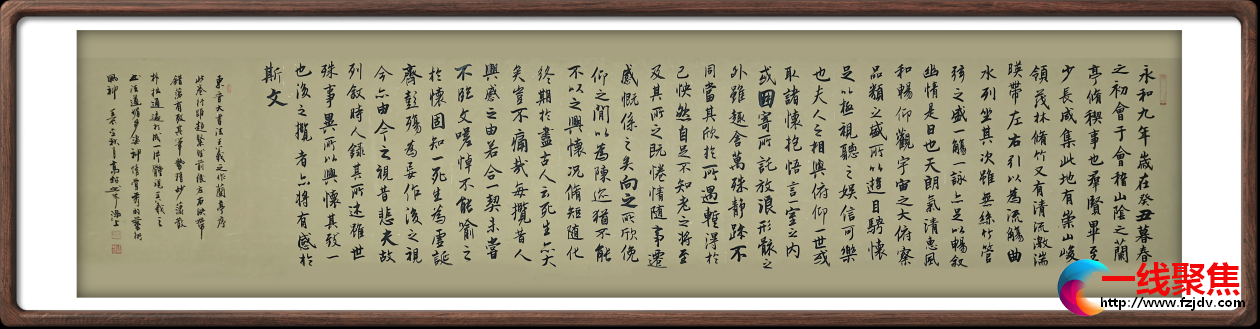 永和九年歲在癸丑暮春
之初會于會稽山陰之蘭
亭脩稧事也羣賢畢至
少長咸集此地有崇山峻
領茂林脩竹又有清流激湍
暎帶左右引以為流觴曲
水列坐其次雖無絲竹管
弦之盛一觴一詠亦足以暢敘
幽情是日也天朗氣清惠風
和暢仰觀宇宙之大俯察
品類之盛所以遊目騁懷
足以極視聽之娛信可樂
也夫人之相與俯仰一世或
取諸懷抱悟言一室之內
或因寄所託放浪形骸之
外雖趣舍萬殊靜躁不
同當其欣於所遇暫得於
己怏然自足不知老之將至
及其所之既惓情隨事遷
感慨係之矣向之所欣俛
仰之閒以為陳迹猶不能
不以之興懷況脩短隨化
終期於盡古人云死生亦大
矣豈不痛哉每攬昔人
興感之由若合一契未嘗
不臨文嗟悼不能喻之
於懷固知一死生為虛誕
齊彭殤為妄作後之視
今亦由今之視昔悲夫故
列敘時人錄其所述雖世
殊事異所以興懷其致一
也後之攬者亦將有感於
斯文
東晉大書法王羲之作蘭亭序
一线聚焦
http://www.fzjdv.com